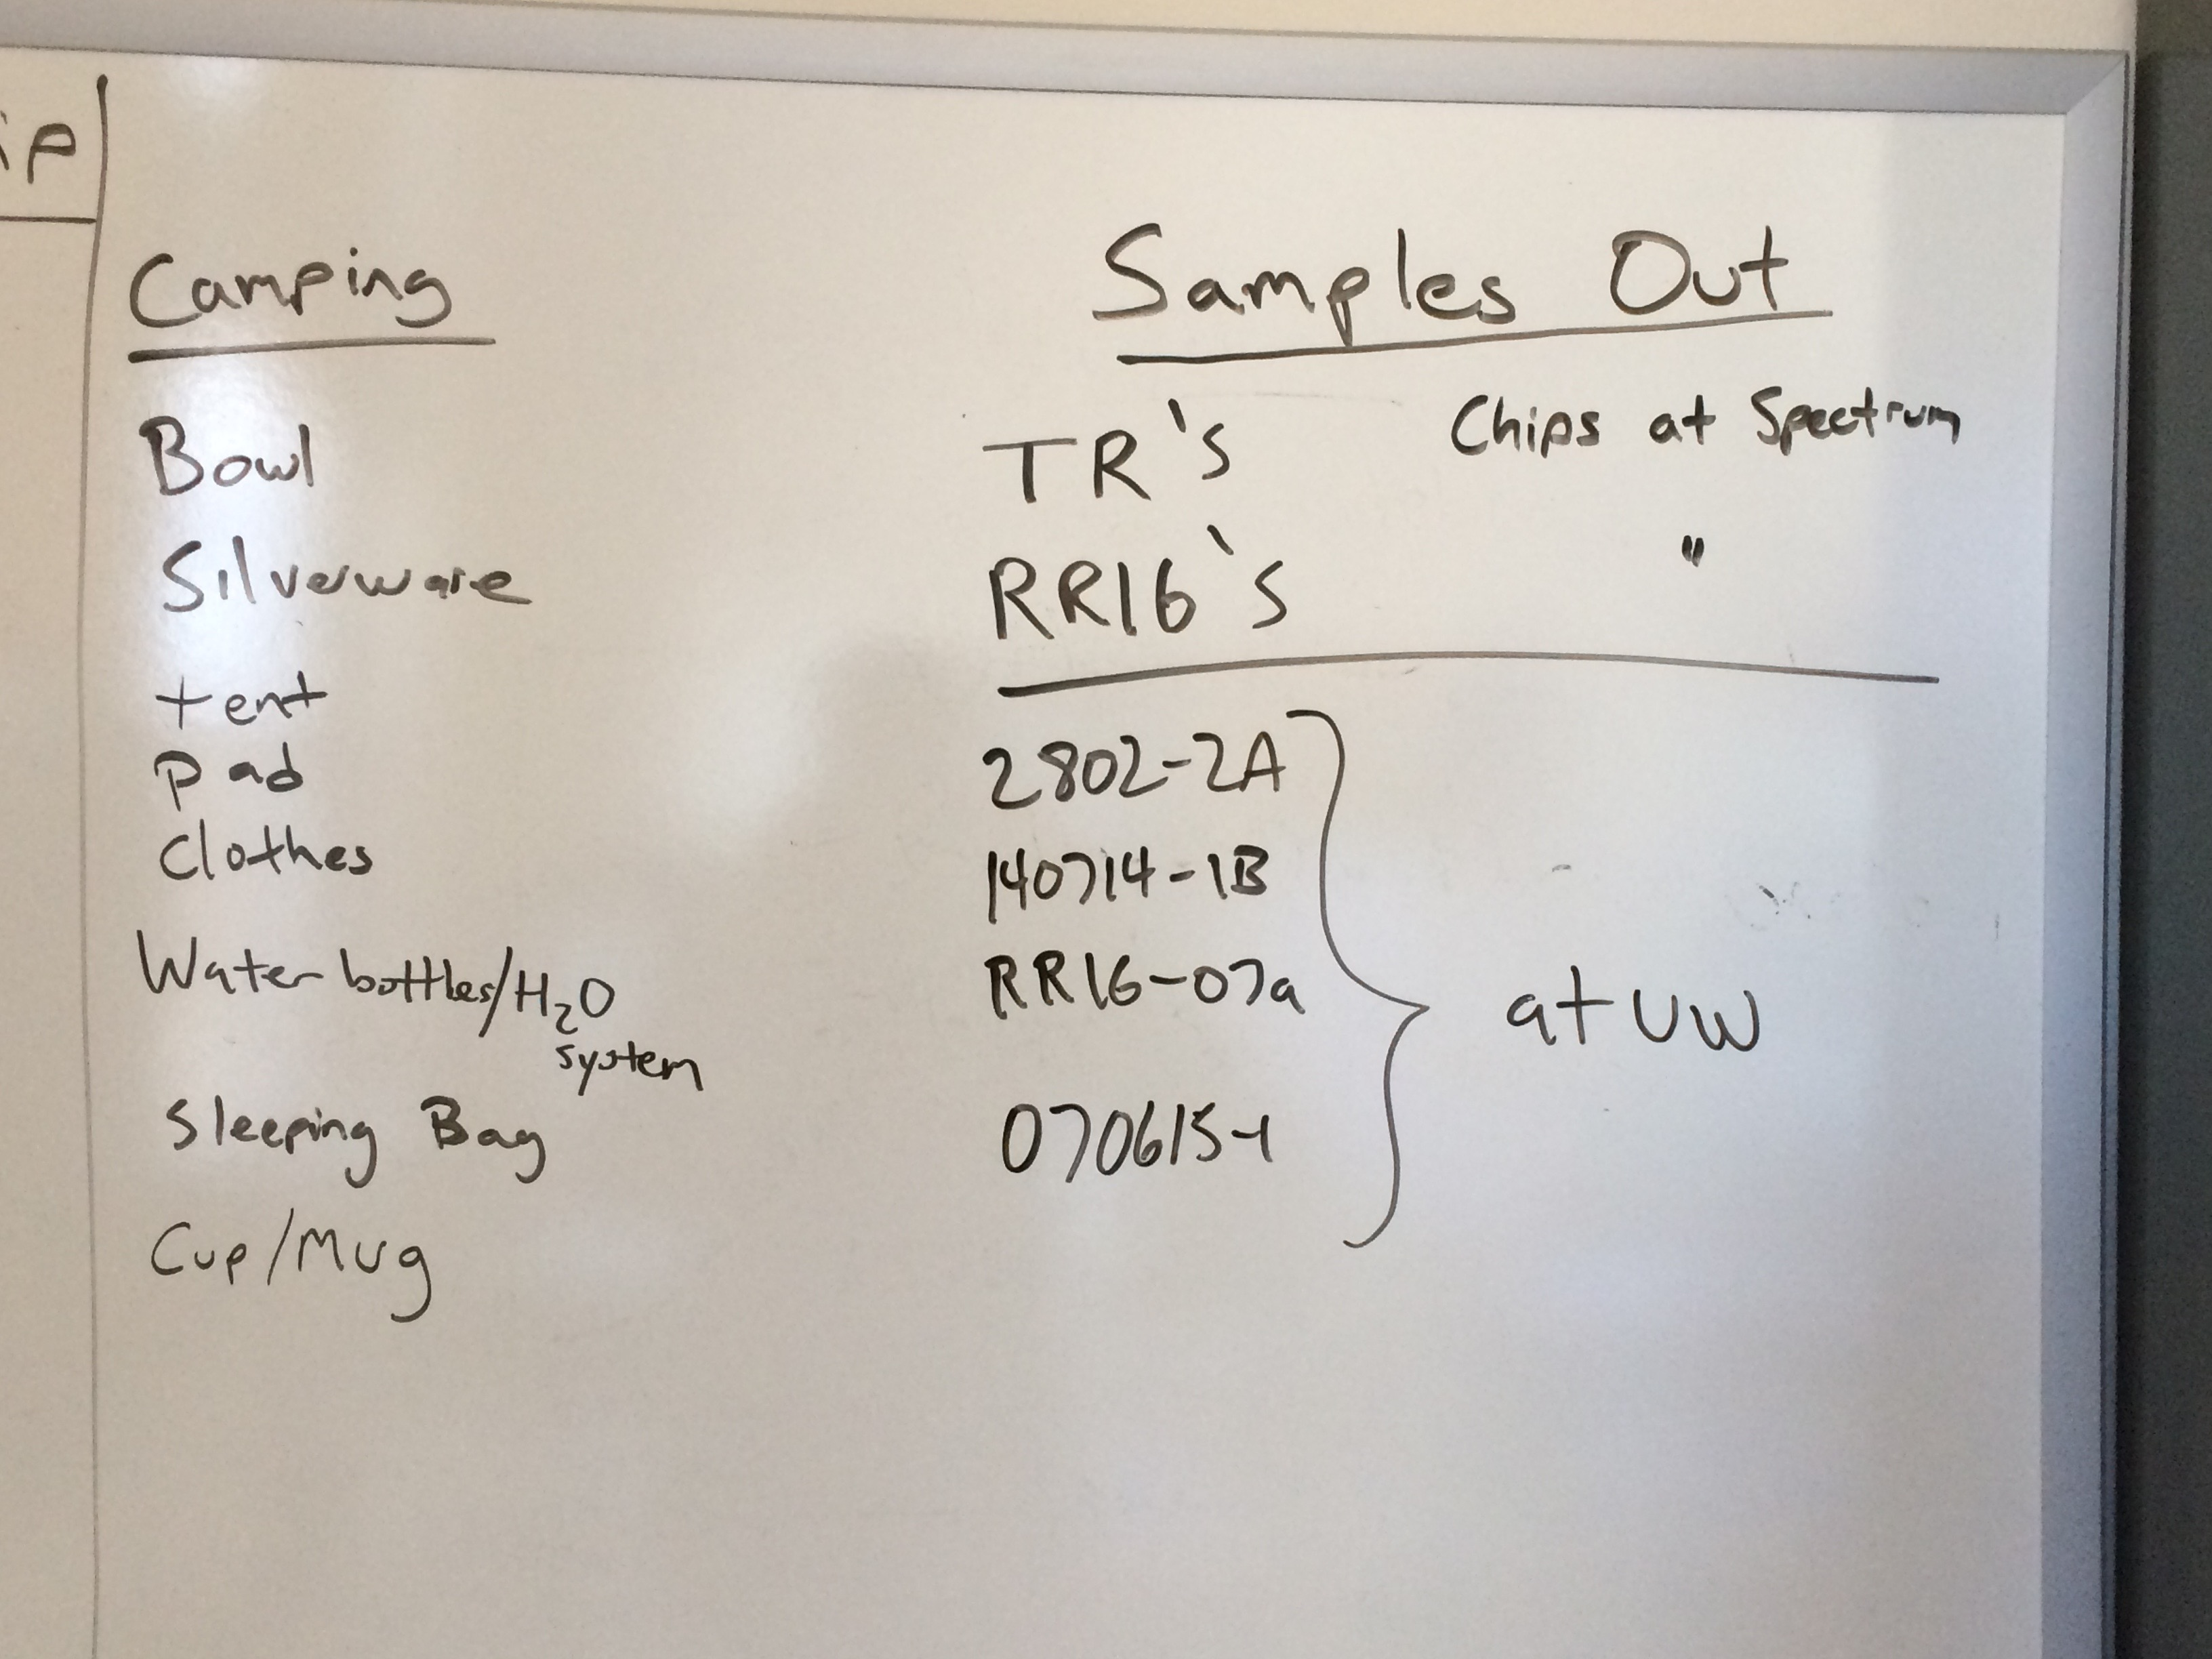 ip
Camping
Bowl
Silverware
tent
pad
Clothes
Water bottles/H₂O
system
Sleeping Bag
Cup/Mug
Samples Out
TR's Chips at Spectrum
RR16's "
2802-2A
140714-1B
RR16-07a
070615-1
at UW